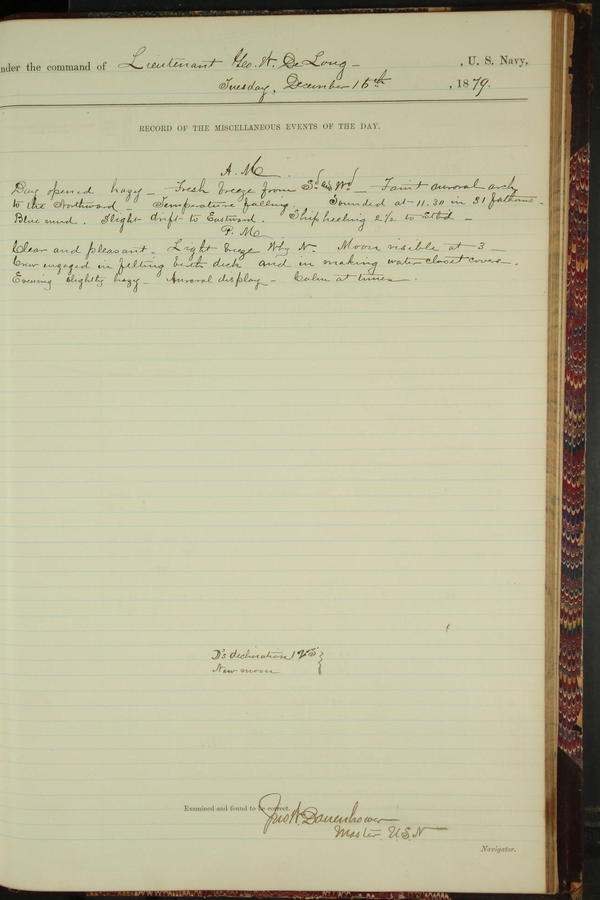 nder the command of Lieutenant Geo. W. De Long — , U. S. Navy,
Tuesday, December 16th , 1879.
RECORD OF THE MISCELLANEOUS EVENTS OF THE DAY.
A. M.
Day opened hazy — Fresh breeze from Sd & Wd — Faint auroral arch
to the Northward Temperature falling. Sounded at 11.30 in 31 fathoms —
Blue mud. Slight drift to Eastward. Ship heeling 2½ to Stbd —
P. M.
Clear and pleasant. Light breeze N. Moon visible at 3 —
Crew engaged in felting berth deck and in making water closet covers —
Evening slightly hazy — Auroral display — Calm at times —
D's declination
New moon
Examined and found to be correct.
Jno W. Danenhower
Master U.S.N
Navigator.